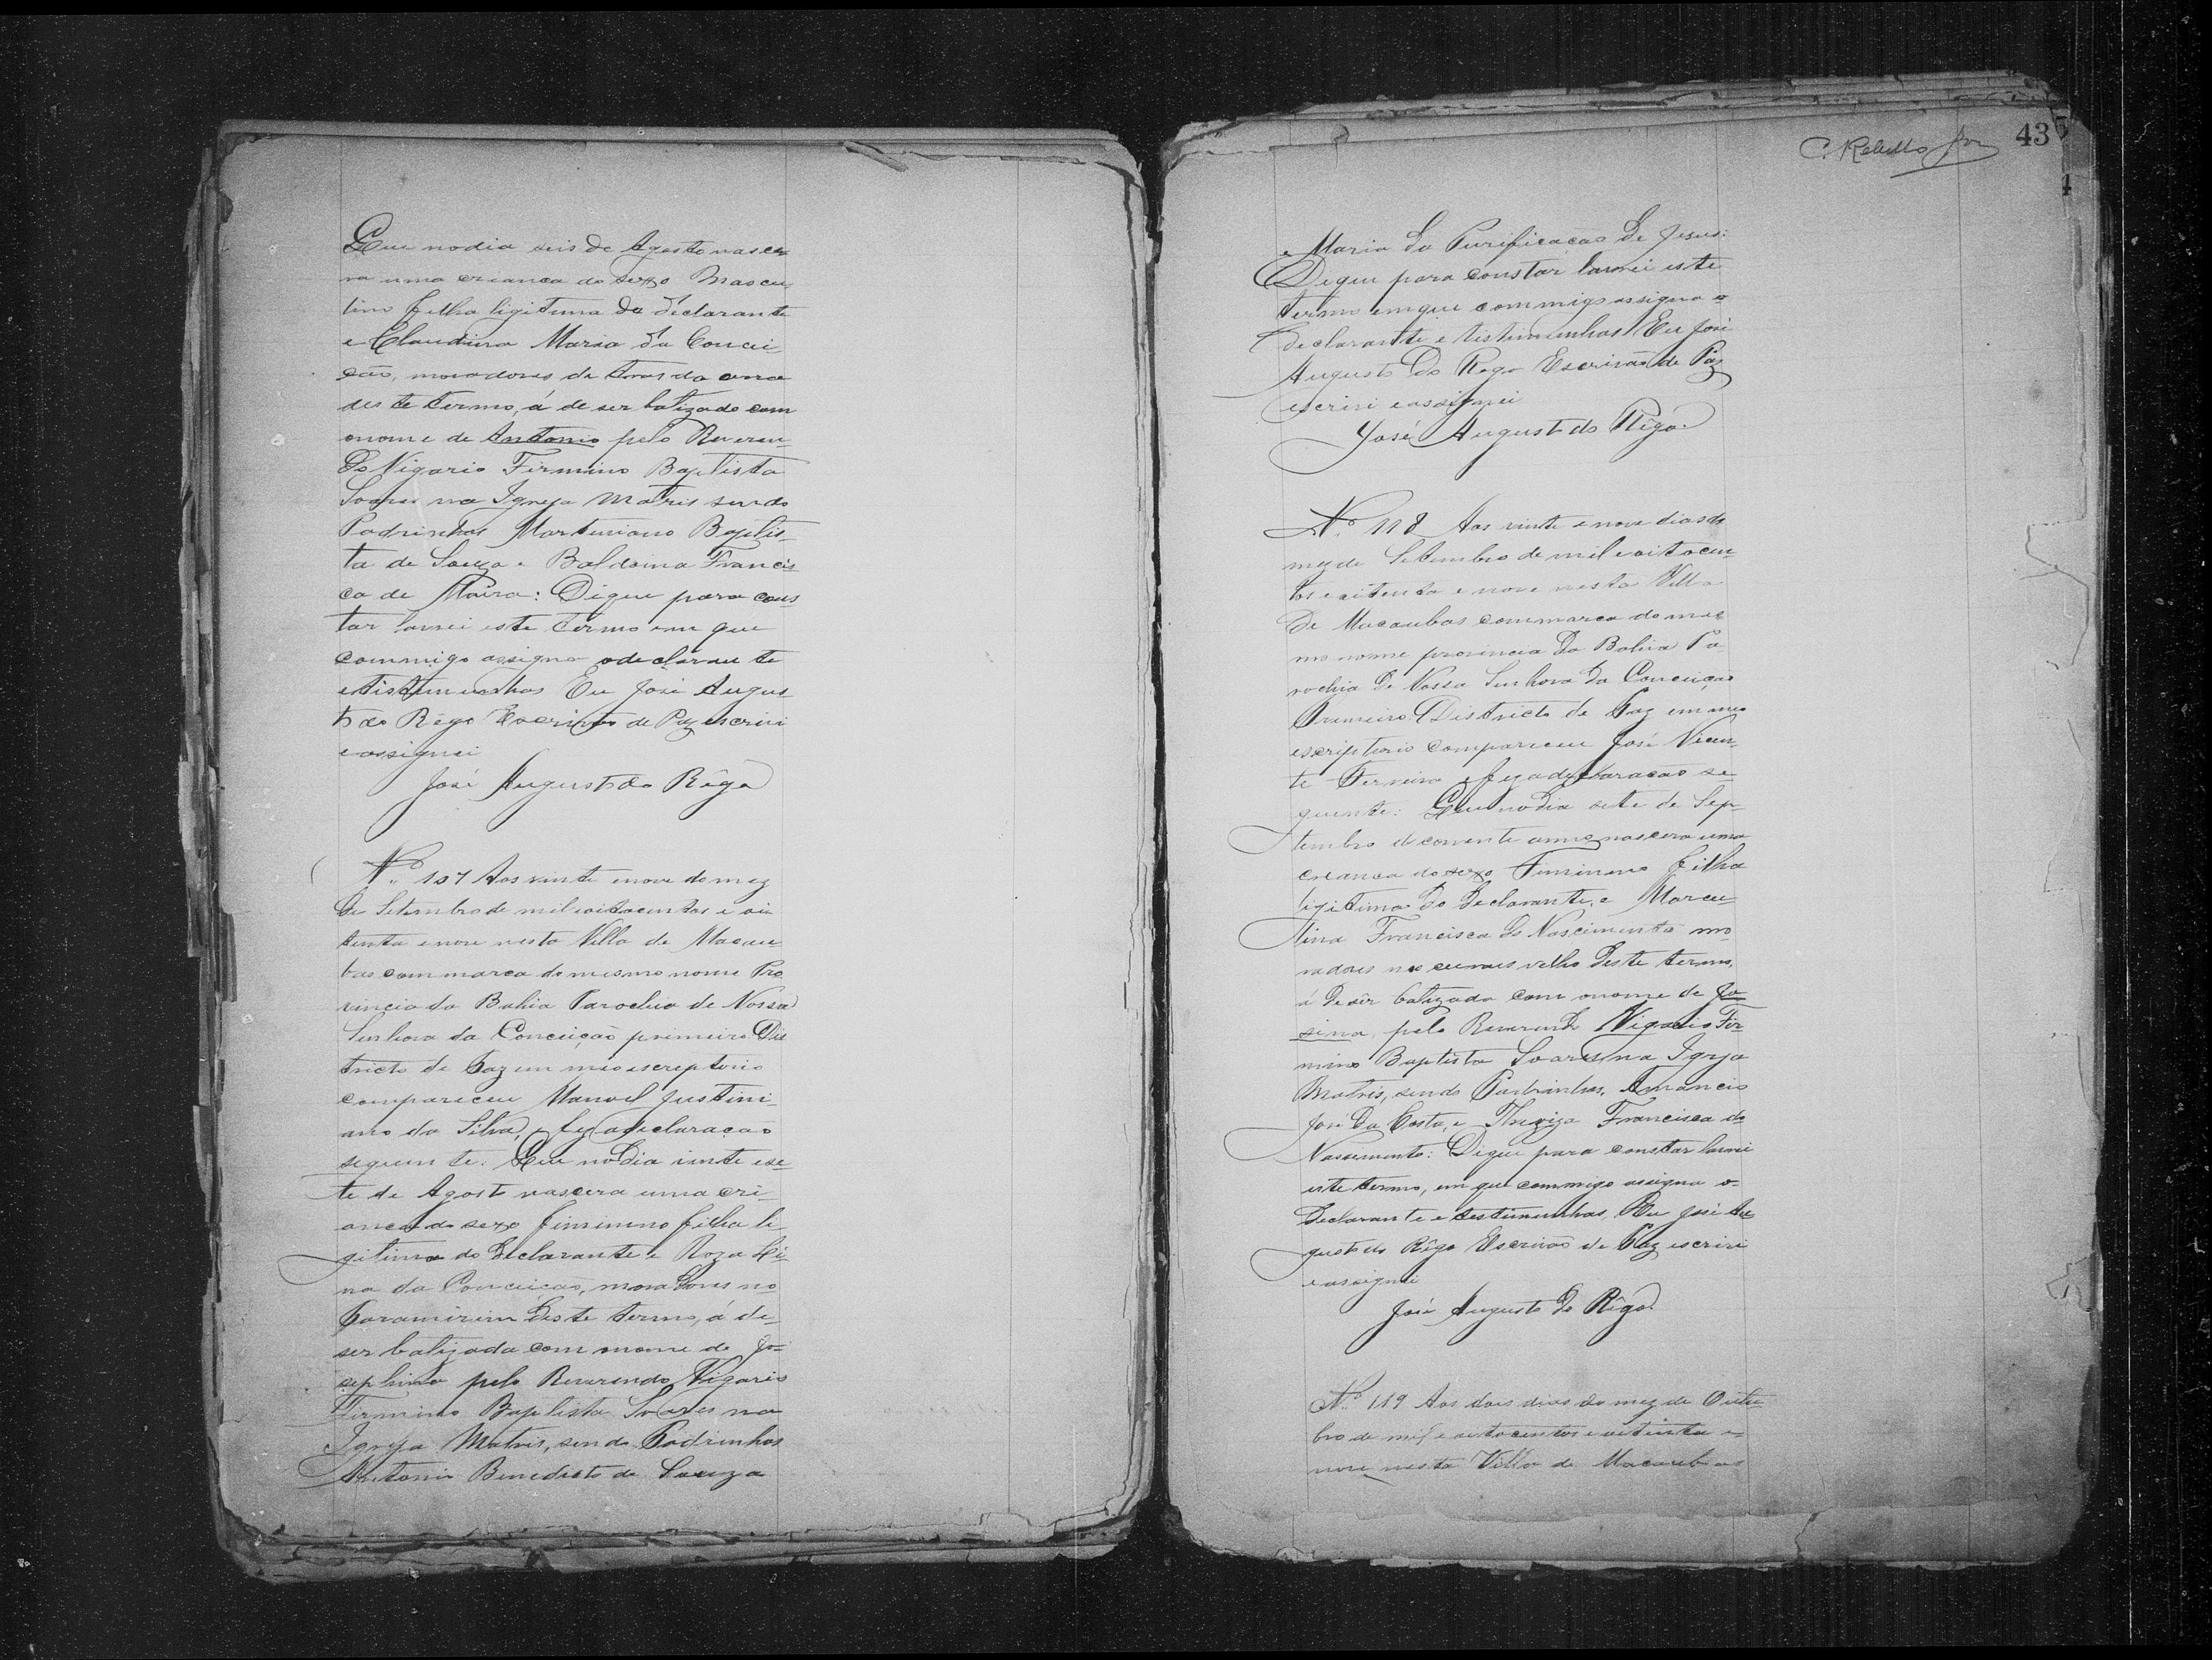 Que no dia seis de Agosto nasce
ra uma creanca do sexo Mascu
lino filha ligitima do declarante
e Claudina Maria da Concei
ção, moradores da
deste termo, á de ser batizado com
o nome de Antonio pelo Reveren
do Vigario Firmino Baptista
Soares na Igreja Matris sendo
Padrinhos Martiniano Baptis
ta de Souza e Baldoina Francis
ca de : Digue para cons
tar lavrei este termo em que
commigo assigna o declarante
e tistimunhas Eu José Augus
to do Rêgo Escrivão de Paz escrivi
e assignei
José Augusto do Rêgo
Nº 117 Aos vinte e nove do mez
de Setembro de mil e oitocentos e oi
tenta e nove nesta Villa de Macau
bas commarca do mesmo nome Pro
vincia da Bahia Parochia de Nossa
Senhora da Conceição primeiro Dis
tricto de Paz em meo escreptorio
compareceu Manoel Justini
ano da Silva, e fez a declaracão
seguente: Que no dia vinte e se
te de Agosto nascera uma cri
anca do sexo Fiminino filha li
gitima do Declarante e Roza Li
na da Conceicão, moradores no
Paramirim deste termo, á de
ser batizada com o nome de Jo
sephina pelo Reverendo Vigario
Firmino Baptista Soares na
Igreja Matris, sendo Padrinhos
Antonio Benedicto de Souza
C. Rebello 43
e Maria da Purificacao de Jesus:
Digue para constar lavrei este
termo em que commigo assigna o
declarante e tistimunhas Eu José
Augusto do Rego Escrivão de Paz
escrivi e assignei
José Augusto do Rêgo
Nº 118 Aos vinte e nove dias do
mez de Setembro de mil e oitocen
tos e oitenta e nove nesta Villa
de Macaubas commarca do mes
mo nome provincia da Bahia Pa
rochia de Nossa Senhora da Conceição
Primeiro Districto de Paz em meo
escriptorio compareceu José Vicen
te Ferreira e fez a declaracão se
guente: Que no dia sete de Sep
tembro do corrente anno nascera uma
creanca do sexo Fiminino filha
ligitima do Declarante, e Marcu
lina Francisca do Nascimento mo
radores no velho deste termo,
á de ser batizada com o nome de Jo
sina, pelo Reverendo Vigario Fir
mino Baptista Soares na Igreja
Matris, sendo Padrinhos, Amancio
José da Costa, e Thereza Francisca do
Nascimento: Digue para constar lavrei
este termo, em que commigo assigna o
Declarante e testimunhas, Eu José Au
gusto do Rêgo Escrivão de Paz escrivi
e assignei
José Augusto do Rêgo.
Nº 119 Aos dois dias do mez de Outu
bro de mil e oitocentos e oitenta e
nove nesta Villa de Macaubas